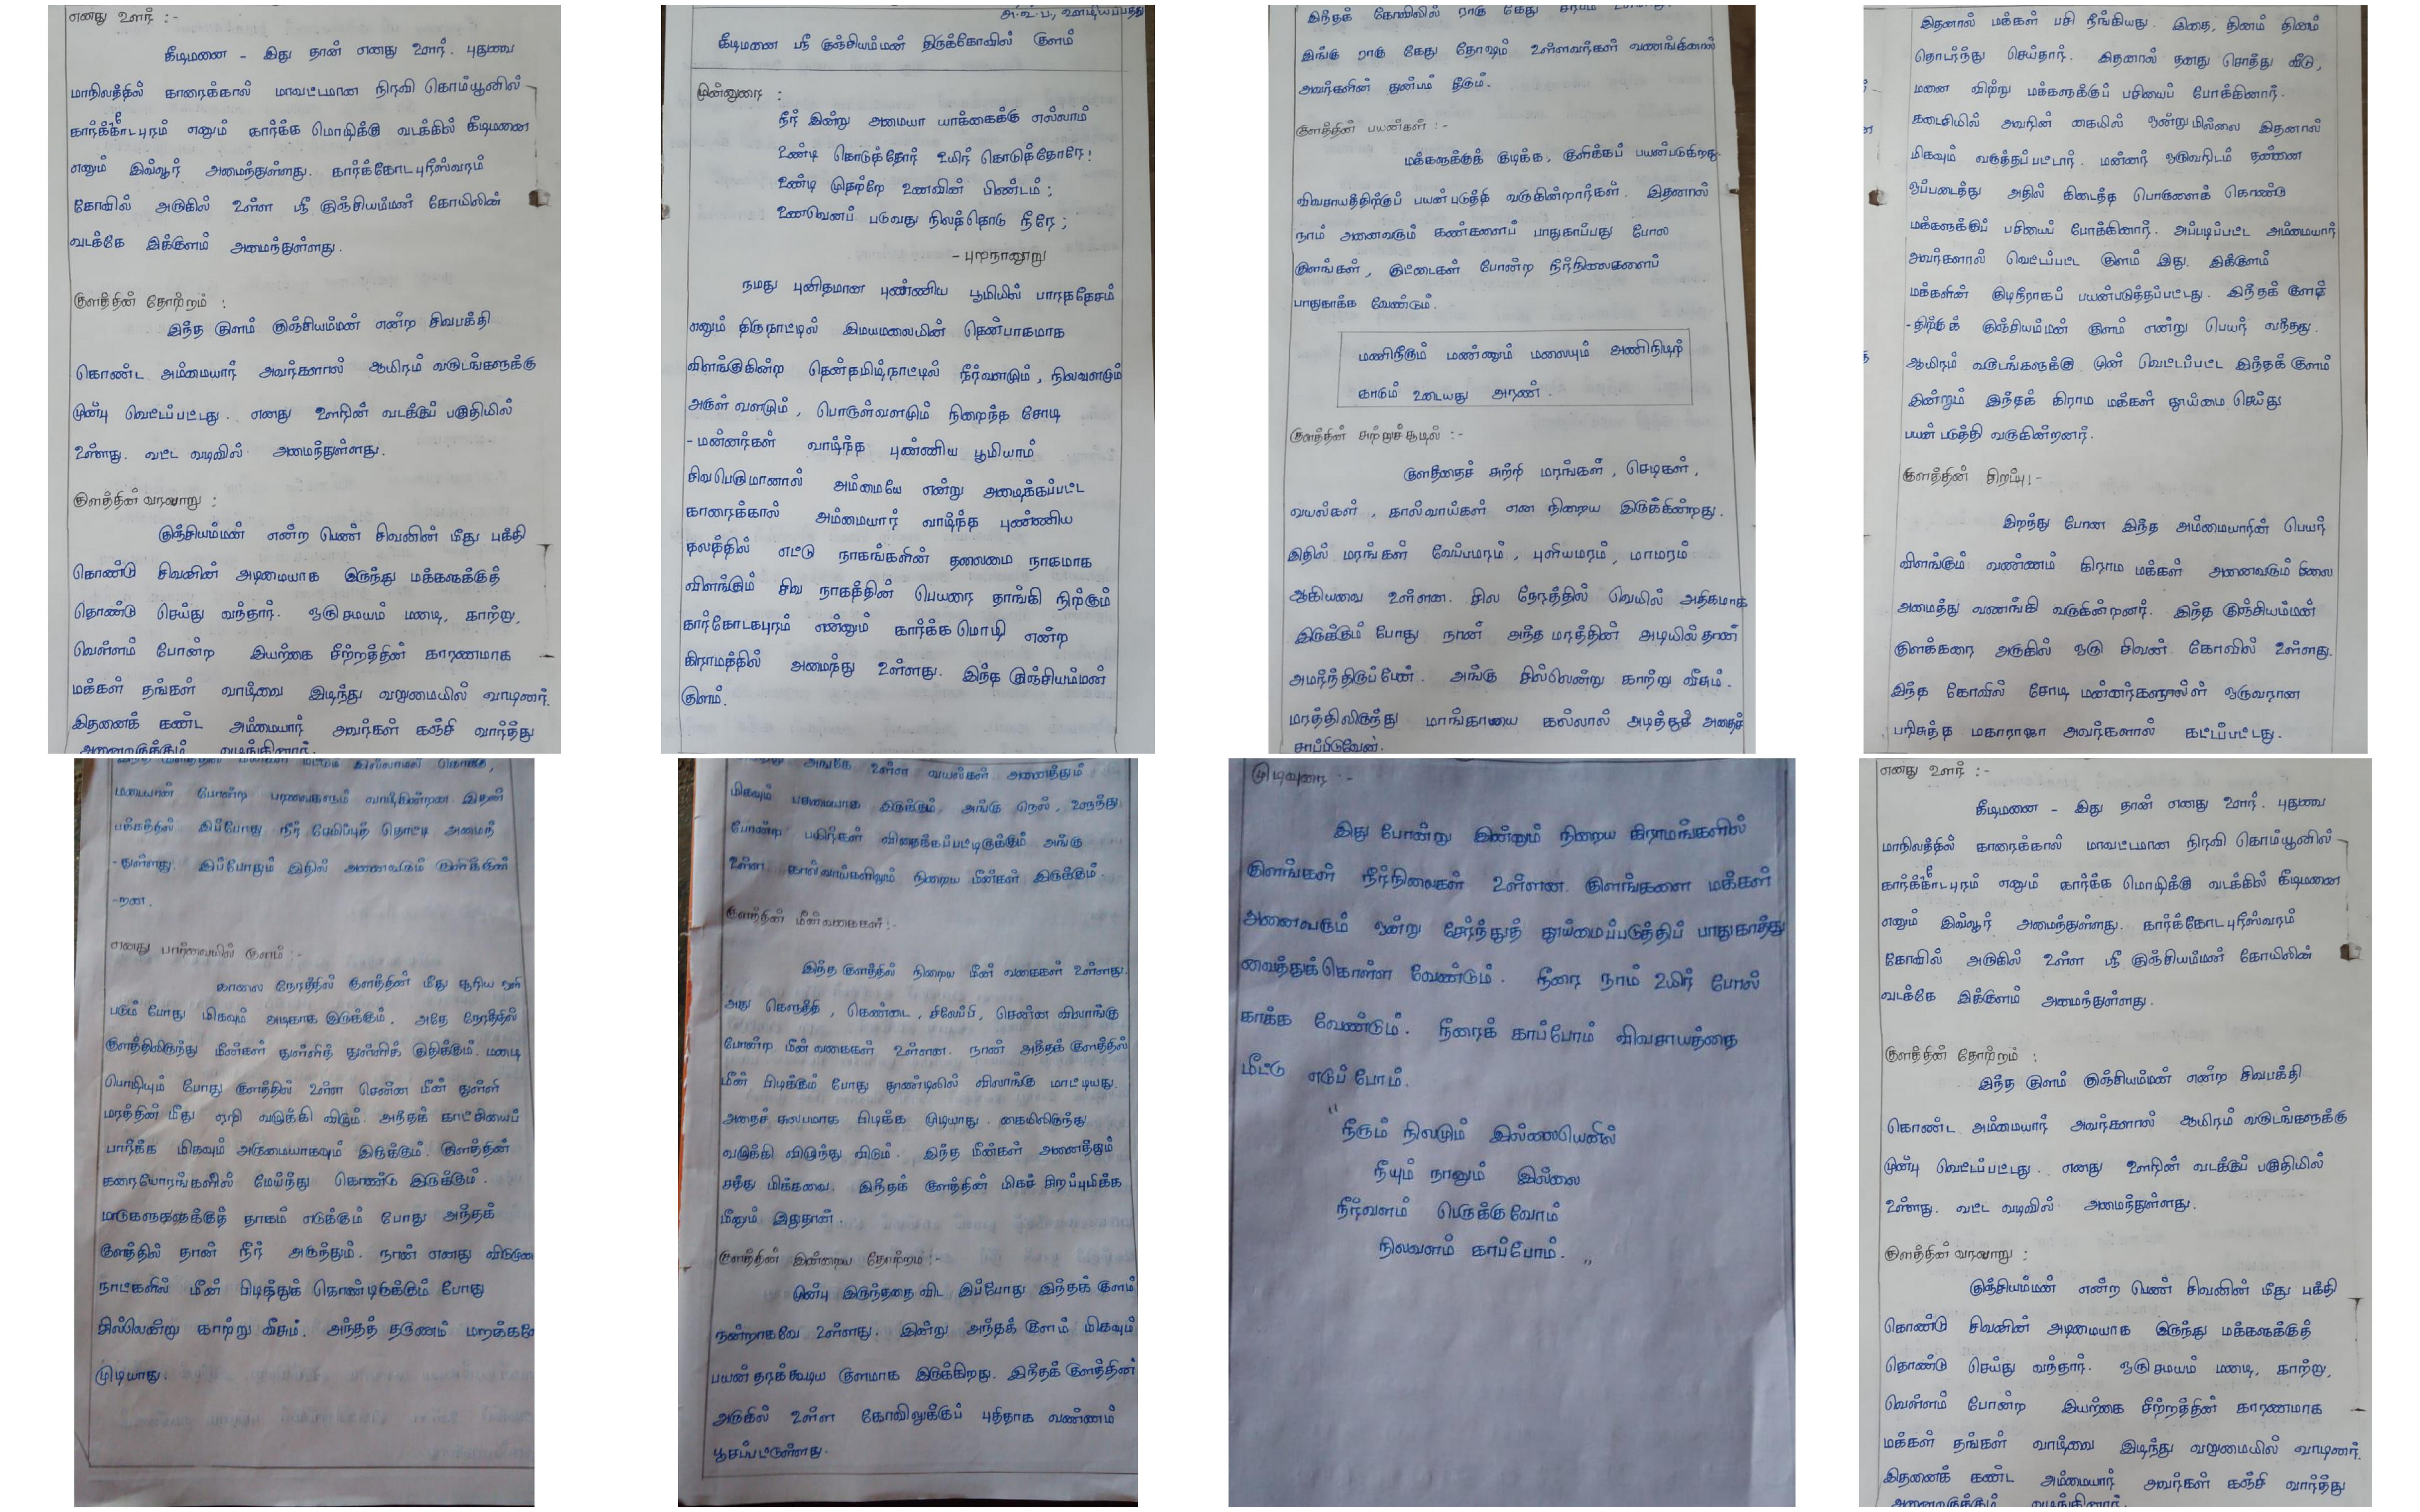 எனது ஊர் :-
கீழமனை - இது தான் எனது ஊர். புதுவை
மாநிலத்தில் காரைக்கால் மாவட்டமான நிரவி கொம்யூனில்
கார்க்கோடபுரம் எனும் கார்க்க மொழிக்கு வடக்கில் கீழமனை
எனும் இவ்வூர் அமைந்துள்ளது. கார்க்கோடபுரீஸ்வரம்
கோவில் அருகில் உள்ள ஸ்ரீ குஞ்சியம்மன் கோயிலின்
வடக்கே இக்குளம் அமைந்துள்ளது.
குளத்தின் தோற்றம் :
இந்த குளம் குஞ்சியம்மன் என்ற சிவபக்தி
கொண்ட அம்மையார் அவர்களால் ஆயிரம் வருடங்களுக்கு
முன்பு வெட்டப்பட்டது. எனது ஊரின் வடக்குப் பகுதியில்
உள்ளது. வட்ட வடிவில் அமைந்துள்ளது.
குளத்தின் வரலாறு :
குஞ்சியம்மன் என்ற பெண் சிவனின் மீது பக்தி
கொண்டு சிவனின் அடிமையாக இருந்து மக்களுக்குத்
தொண்டு செய்து வந்தார். ஒரு சமயம் மழை, காற்று,
வெள்ளம் போன்ற இயற்கை சீற்றத்தின் காரணமாக
மக்கள் தங்கள் வாழ்வை இழந்து வறுமையில் வாடினர்.
இதனைக் கண்ட அம்மையார் அவர்கள் கஞ்சி வார்த்து
அனைவருக்கும் வழங்கினார்.
கீழமனை ஸ்ரீ குஞ்சியம்மன் திருக்கோவில் குளம்
முன்னுரை :
நீர் இன்று அமையா யாக்கைக்கு எல்லாம்
உண்டி கொடுத்தோர் உயிர் கொடுத்தோரே!
உண்டி முதற்றே உணவின் பிண்டம் ;
உணவெனப் படுவது நிலத்தொடு நீரே ;
- புறநானூறு
நமது புனிதமான புண்ணிய பூமியில் பாரததேசம்
எனும் திருநாட்டில் இமயமலையின் தென்பாகமாக
விளங்குகின்ற தென்தமிழ்நாட்டில் நீர்வளமும், நிலவளமும்
அருள் வளமும், பொருள்வளமும் நிறைந்த சோழ
-மன்னர்கள் வாழ்ந்த புண்ணிய பூமியாம்
சிவபெருமானால் அம்மையே என்று அழைக்கப்பட்ட
காரைக்கால் அம்மையார் வாழ்ந்த புண்ணிய
தலத்தில் எட்டு நாகங்களின் தலைமை நாகமாக
விளங்கும் சிவ நாகத்தின் பெயரை தாங்கி நிற்கும்
கார்கோடகபுரம் என்னும் கார்க்க மொழி என்ற
கிராமத்தில் அமைந்து உள்ளது. இந்த குஞ்சியம்மன்
குளம்.
இந்தக் கோவிலில் ராகு கேது
இங்கு ராகு கேது தோஷம் உள்ளவர்கள் வணங்கினால்
அவர்களின் துன்பம் தீரும்.
குளத்தின் பயன்கள் :-
மக்களுக்குக் குடிக்க, குளிக்கப் பயன்படுகிறது.
விவசாயத்திற்குப் பயன்படுத்தி வருகின்றார்கள். இதனால்
நாம் அனைவரும் கண்களைப் பாதுகாப்பது போல
குளங்கள், குட்டைகள் போன்ற நீர்நிலைகளைப்
பாதுகாக்க வேண்டும்.
மணிநீரும் மண்ணும் மலையும் அணிநிழற்
காடும் உடையது அரண்.
குளத்தின் சுற்றுச்சூழல் :-
குளத்தைச் சுற்றி மரங்கள், செடிகள்,
வயல்கள், கால்வாய்கள் என நிறைய இருக்கின்றது.
இதில் மரங்கள் வேப்பமரம், புளியமரம், மாமரம்
ஆகியவை உள்ளன. சில நேரத்தில் வெயில் அதிகமாக
இருக்கும் போது நான் அந்த மரத்தின் அடியில் தான்
அமர்ந்திருப்பேன். அங்கு சில்லென்று காற்று வீசும்.
மரத்திலிருந்து மாங்காயை கல்லால் அடித்துச் அதைச்
சாப்பிடுவேன்.
இதனால் மக்கள் பசி நீங்கியது. இதை, தினம் தினம்
தொடர்ந்து செய்தார். இதனால் தனது சொத்து வீடு,
மனை விற்று மக்களுக்குப் பசியைப் போக்கினார்.
கடைசியில் அவரின் கையில் ஒன்றுமில்லை இதனால்
மிகவும் வருத்தப்பட்டார். மன்னர் ஒருவரிடம் தன்னை
ஒப்படைத்து அதில் கிடைத்த பொருளைக் கொண்டு
மக்களுக்குப் பசியைப் போக்கினார். அப்படிப்பட்ட அம்மையார்
அவர்களால் வெட்டப்பட்ட குளம் இது. இக்குளம்
மக்களின் குடிநீராகப் பயன்படுத்தப்பட்டது. இந்தக் குளத்
-திற்குக் குஞ்சியம்மன் குளம் என்று பெயர் வந்தது.
ஆயிரம் வருடங்களுக்கு முன் வெட்டப்பட்ட இந்தக் குளம்
இன்றும் இந்தக் கிராம மக்கள் தூய்மை செய்து
பயன் படுத்தி வருகின்றனர்.
குளத்தின் சிறப்பு:-
இறந்து போன இந்த அம்மையாரின் பெயர்
விளங்கும் வண்ணம் கிராம மக்கள் அனைவரும் சிலை
அமைத்து வணங்கி வருகின்றனர். இந்த குஞ்சியம்மன்
குளக்கரை அருகில் ஒரு சிவன் கோவில் உள்ளது.
இந்த கோவில் சோழ மன்னர்களுள் ஒருவரான
பரிசுத்த மகாராஜா அவர்களால் கட்டப்பட்டது.
போன்ற பறவைகளும் வாழ்கின்றன. இதன்
பக்கத்தில் இப்போது நீர் தேமிப்புத் தொட்டி அமைந்
-துள்ளது. இப்போதும் இதில் அனைவரும் குளிக்கின்
-றன.
எனது பார்வையில் குளம் :-
காலை நேரத்தில் குளத்தின் மீது சூரிய ஒளி
படும் போது மிகவும் அழகாக இருக்கும். அதே நேரத்தில்
குளத்திலிருந்து மீன்கள் துள்ளித் துள்ளிக் குதிக்கும். மழை
பொழியும் போது குளத்தில் உள்ள சென்ன மீன் துள்ளி
மரத்தின் மீது ஏறி வழுக்கி விடும். அந்தக் காட்சியைப்
பார்க்க மிகவும் அருமையாகவும் இருக்கும். குளத்தின்
கரையோரங்களில் மேய்ந்து கொண்டு இருக்கும்.
மாடுகளுக்குத் தாகம் எடுக்கும் போது அந்தக்
குளத்தில் தான் நீர் அருந்தும். நான் எனது விடுமுறை
நாட்களில் மீன் பிடித்துக் கொண்டிருக்கும் போது
சில்லென்று காற்று வீசும். அந்தத் தருணம் மறக்கவே
முடியாது.
அங்கே உள்ள வயல்கள் அனைத்தும்
மிகவும் பசுமையாக இருக்கும். அங்கு நெல், உளுந்து
போன்ற பயிர்கள் விதைக்கப்பட்டிருக்கும் அங்கு
உள்ள கால்வாய்களிலும் நிறைய மீன்கள் இருக்கும்.
குளத்தின் மீன் வகைகள் :-
இந்த குளத்தில் நிறைய மீன் வகைகள் உள்ளது.
அது கெளுத்தி, கெண்டை, சிலேப்பி, சென்ன விலாங்கு
போன்ற மீன் வகைகள் உள்ளன. நான் அந்தக் குளத்தில்
மீன் பிடிக்கும் போது தூண்டிலில் விலாங்கு மாட்டியது.
அதைச் சுலபமாக பிடிக்க முடியாது. கையிலிருந்து
வழுக்கி விழுந்து விடும். இந்த மீன்கள் அனைத்தும்
சத்து மிக்கவை. இந்தக் குளத்தின் மிகச் சிறப்புமிக்க
மீனும் இதுதான்.
குளத்தின் இன்றைய தோற்றம் :-
முன்பு இருந்ததை விட இப்போது இந்தக் குளம்
நன்றாகவே உள்ளது. இன்று அந்தக் குளம் மிகவும்
பயன் தரக்கூடிய குளமாக இருக்கிறது. இந்தக் குளத்தின்
அருகில் உள்ள கோவிலுக்குப் புதிதாக வண்ணம்
பூசப்பட்டுள்ளது.
முடிவுரை :-
இது போன்று இன்னும் நிறைய கிராமங்களில்
குளங்கள் நீர்நிலைகள் உள்ளன. குளங்களை மக்கள்
அனைவரும் ஒன்று சேர்ந்துத் தூய்மைப்படுத்திப் பாதுகாத்து
வைத்துக்கொள்ள வேண்டும். நீரை நாம் உயிர் போல்
காக்க வேண்டும். நீரைக் காப்போம் விவசாயத்தை
மீட்டு எடுப்போம்.
" நீரும் நிலமும் இல்லையெனில்
நீயும் நானும் இல்லை
நீர்வளம் பெருக்குவோம்
நிலவளம் காப்போம். "
எனது ஊர் :-
கீழமனை - இது தான் எனது ஊர். புதுவை
மாநிலத்தில் காரைக்கால் மாவட்டமான நிரவி கொம்யூனில்
கார்க்கோடபுரம் எனும் கார்க்க மொழிக்கு வடக்கில் கீழமனை
எனும் இவ்வூர் அமைந்துள்ளது. கார்க்கோடபுரீஸ்வரம்
கோவில் அருகில் உள்ள ஸ்ரீ குஞ்சியம்மன் கோயிலின்
வடக்கே இக்குளம் அமைந்துள்ளது.
குளத்தின் தோற்றம் :
இந்த குளம் குஞ்சியம்மன் என்ற சிவபக்தி
கொண்ட அம்மையார் அவர்களால் ஆயிரம் வருடங்களுக்கு
முன்பு வெட்டப்பட்டது. எனது ஊரின் வடக்குப் பகுதியில்
உள்ளது. வட்ட வடிவில் அமைந்துள்ளது.
குளத்தின் வரலாறு :
குஞ்சியம்மன் என்ற பெண் சிவனின் மீது பக்தி
கொண்டு சிவனின் அடிமையாக இருந்து மக்களுக்குத்
தொண்டு செய்து வந்தார். ஒரு சமயம் மழை, காற்று,
வெள்ளம் போன்ற இயற்கை சீற்றத்தின் காரணமாக
மக்கள் தங்கள் வாழ்வை இழந்து வறுமையில் வாடினர்.
இதனைக் கண்ட அம்மையார் அவர்கள் கஞ்சி வார்த்து
அனைவருக்கும் வழங்கினார்.